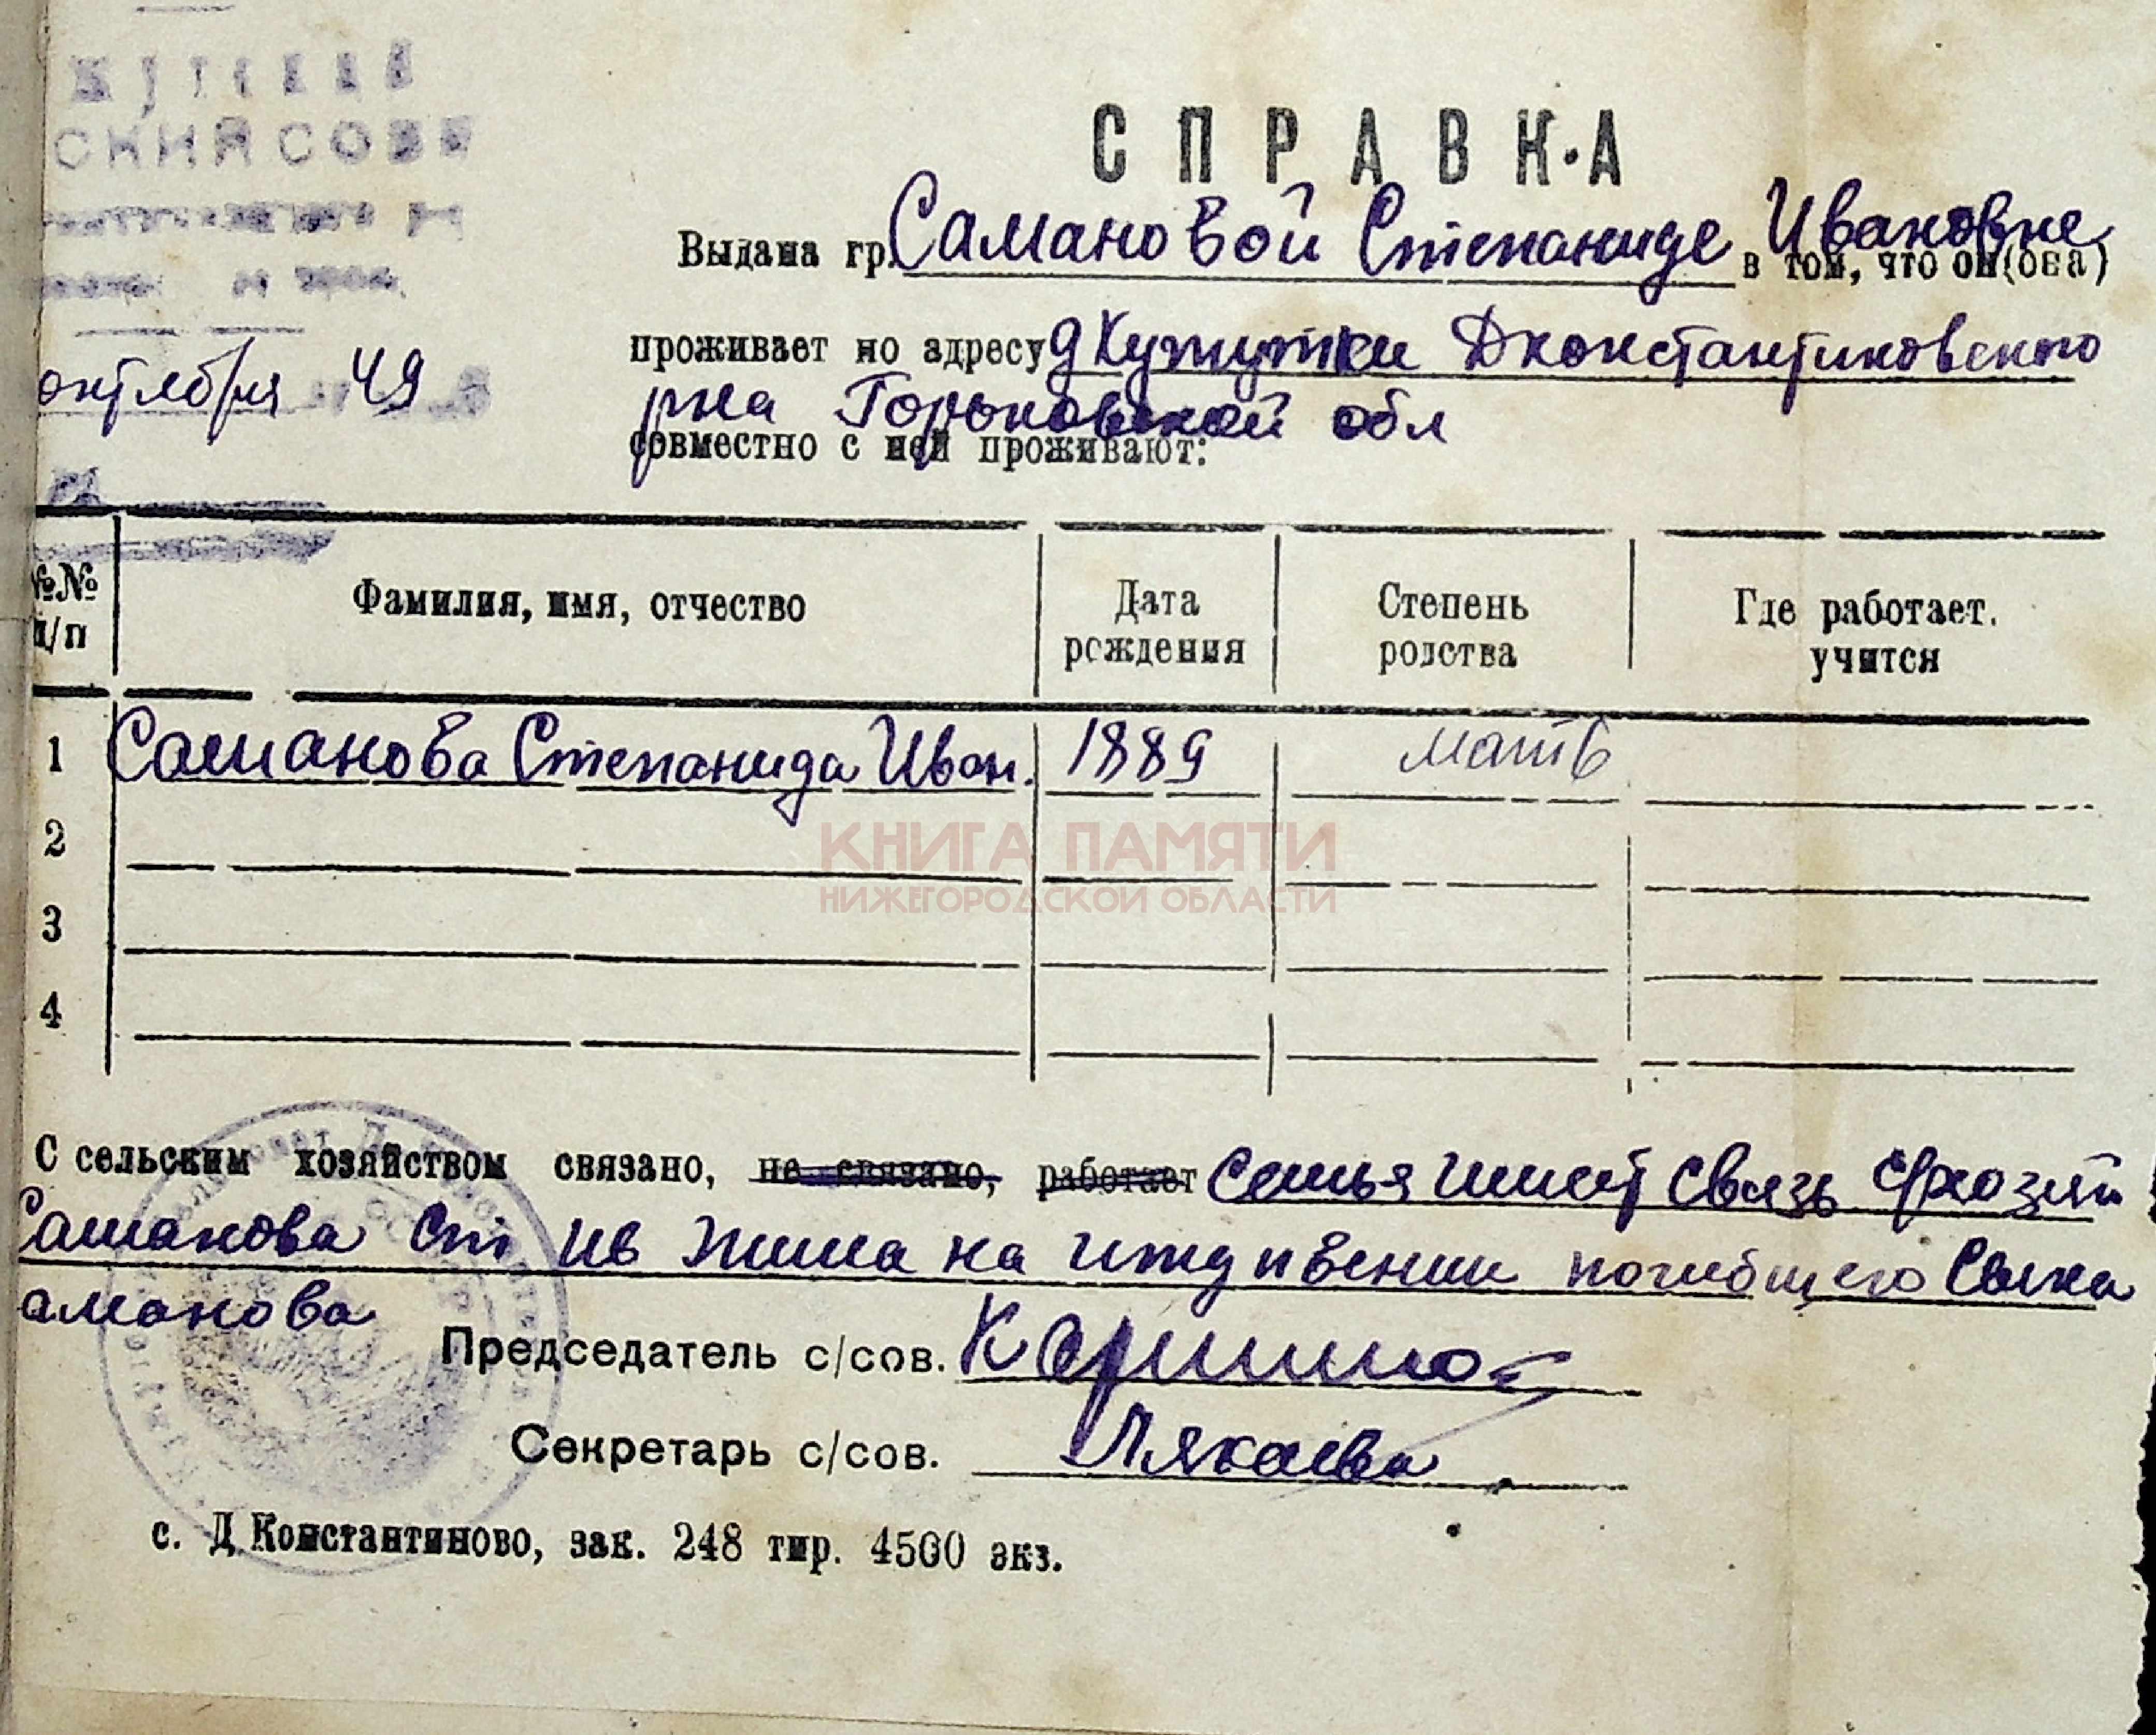 СКИЙ СОВЕ
СПРАВКА
Выдана гр. Самановой Степаниде Ивановне в том, что он (она)
проживает по адресу д Хупутки Дконстантиновского
рна Горьковской обл
октября 49
совместно с ней проживают:
№№ п/п Фамилия, имя, отчество Дата рождения Степень родства Где работает. учится
1 Саманова Степанида Иван. 1889 мать
2
КНИГА ПАМЯТИ
НИЖЕГОРОДСКОЙ ОБЛАСТИ
3
4
С сельским хозяйством связано, не связано, работает Семья имеет связь схозяй
Саманова Ст Ив жила на иждивении погибщего Сына
аманова
Председатель с/сов.
Секретарь с/сов.
с. Д Константиново, зак. 248 тир. 4500 экз.